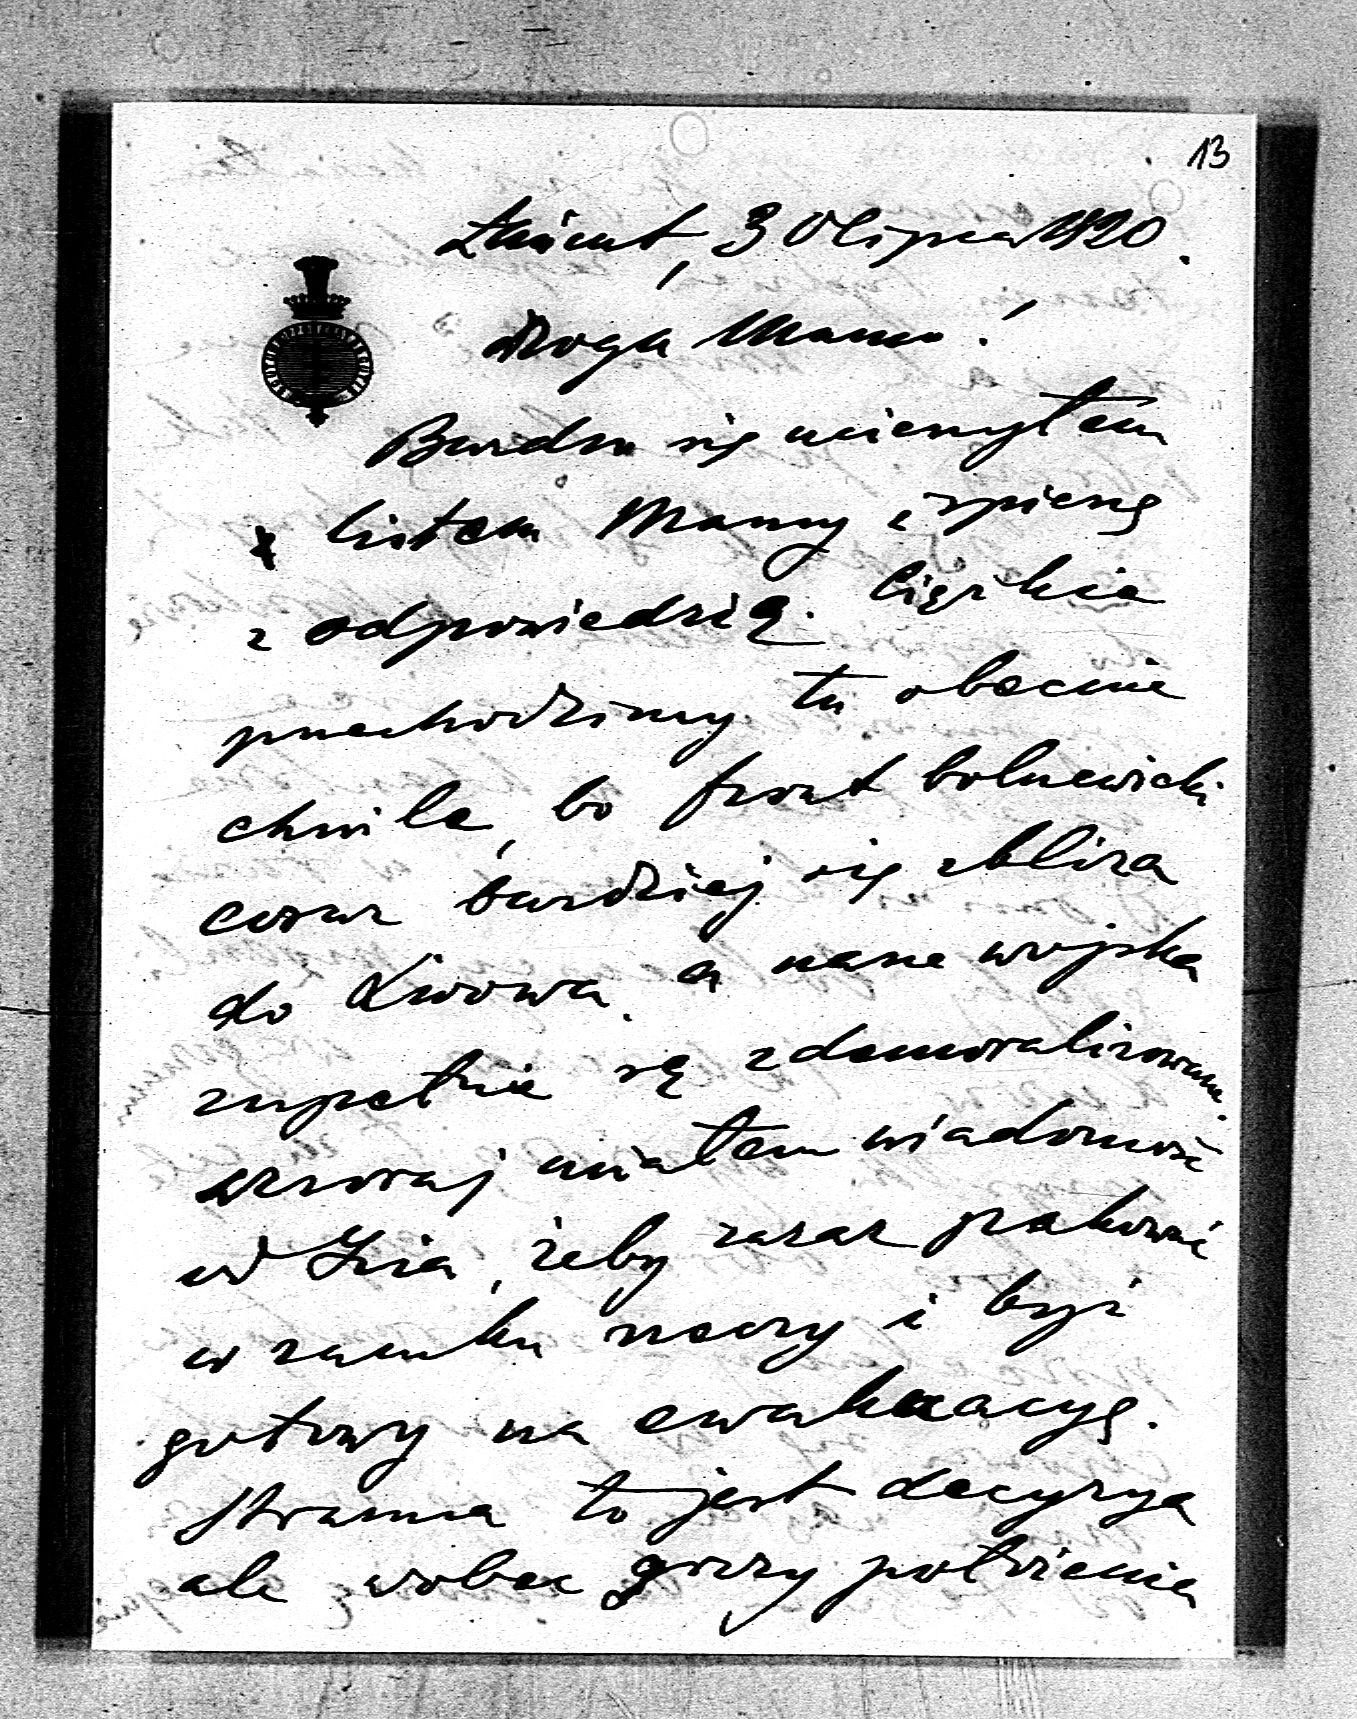 13
Łańcut, 30 lipca 1920.
Droga Mamo!
Bardzo się ucieszyłem
listem Mamy i spieszę
z odpowiedzią. Ciężkie
przechodzimy tu obecnie
chwile, bo front bolszewicki
coraz bardziej się zbliża
do Lwowa, a nasze wojska
zupełnie są zdemoralizowane.
Wczoraj miałem wiadomość
od że by zaraz pakować
w zamku rzeczy i być
gotowy na ewakuacyę.
Straszna to jest decyzya
ale wobec grozy położenia